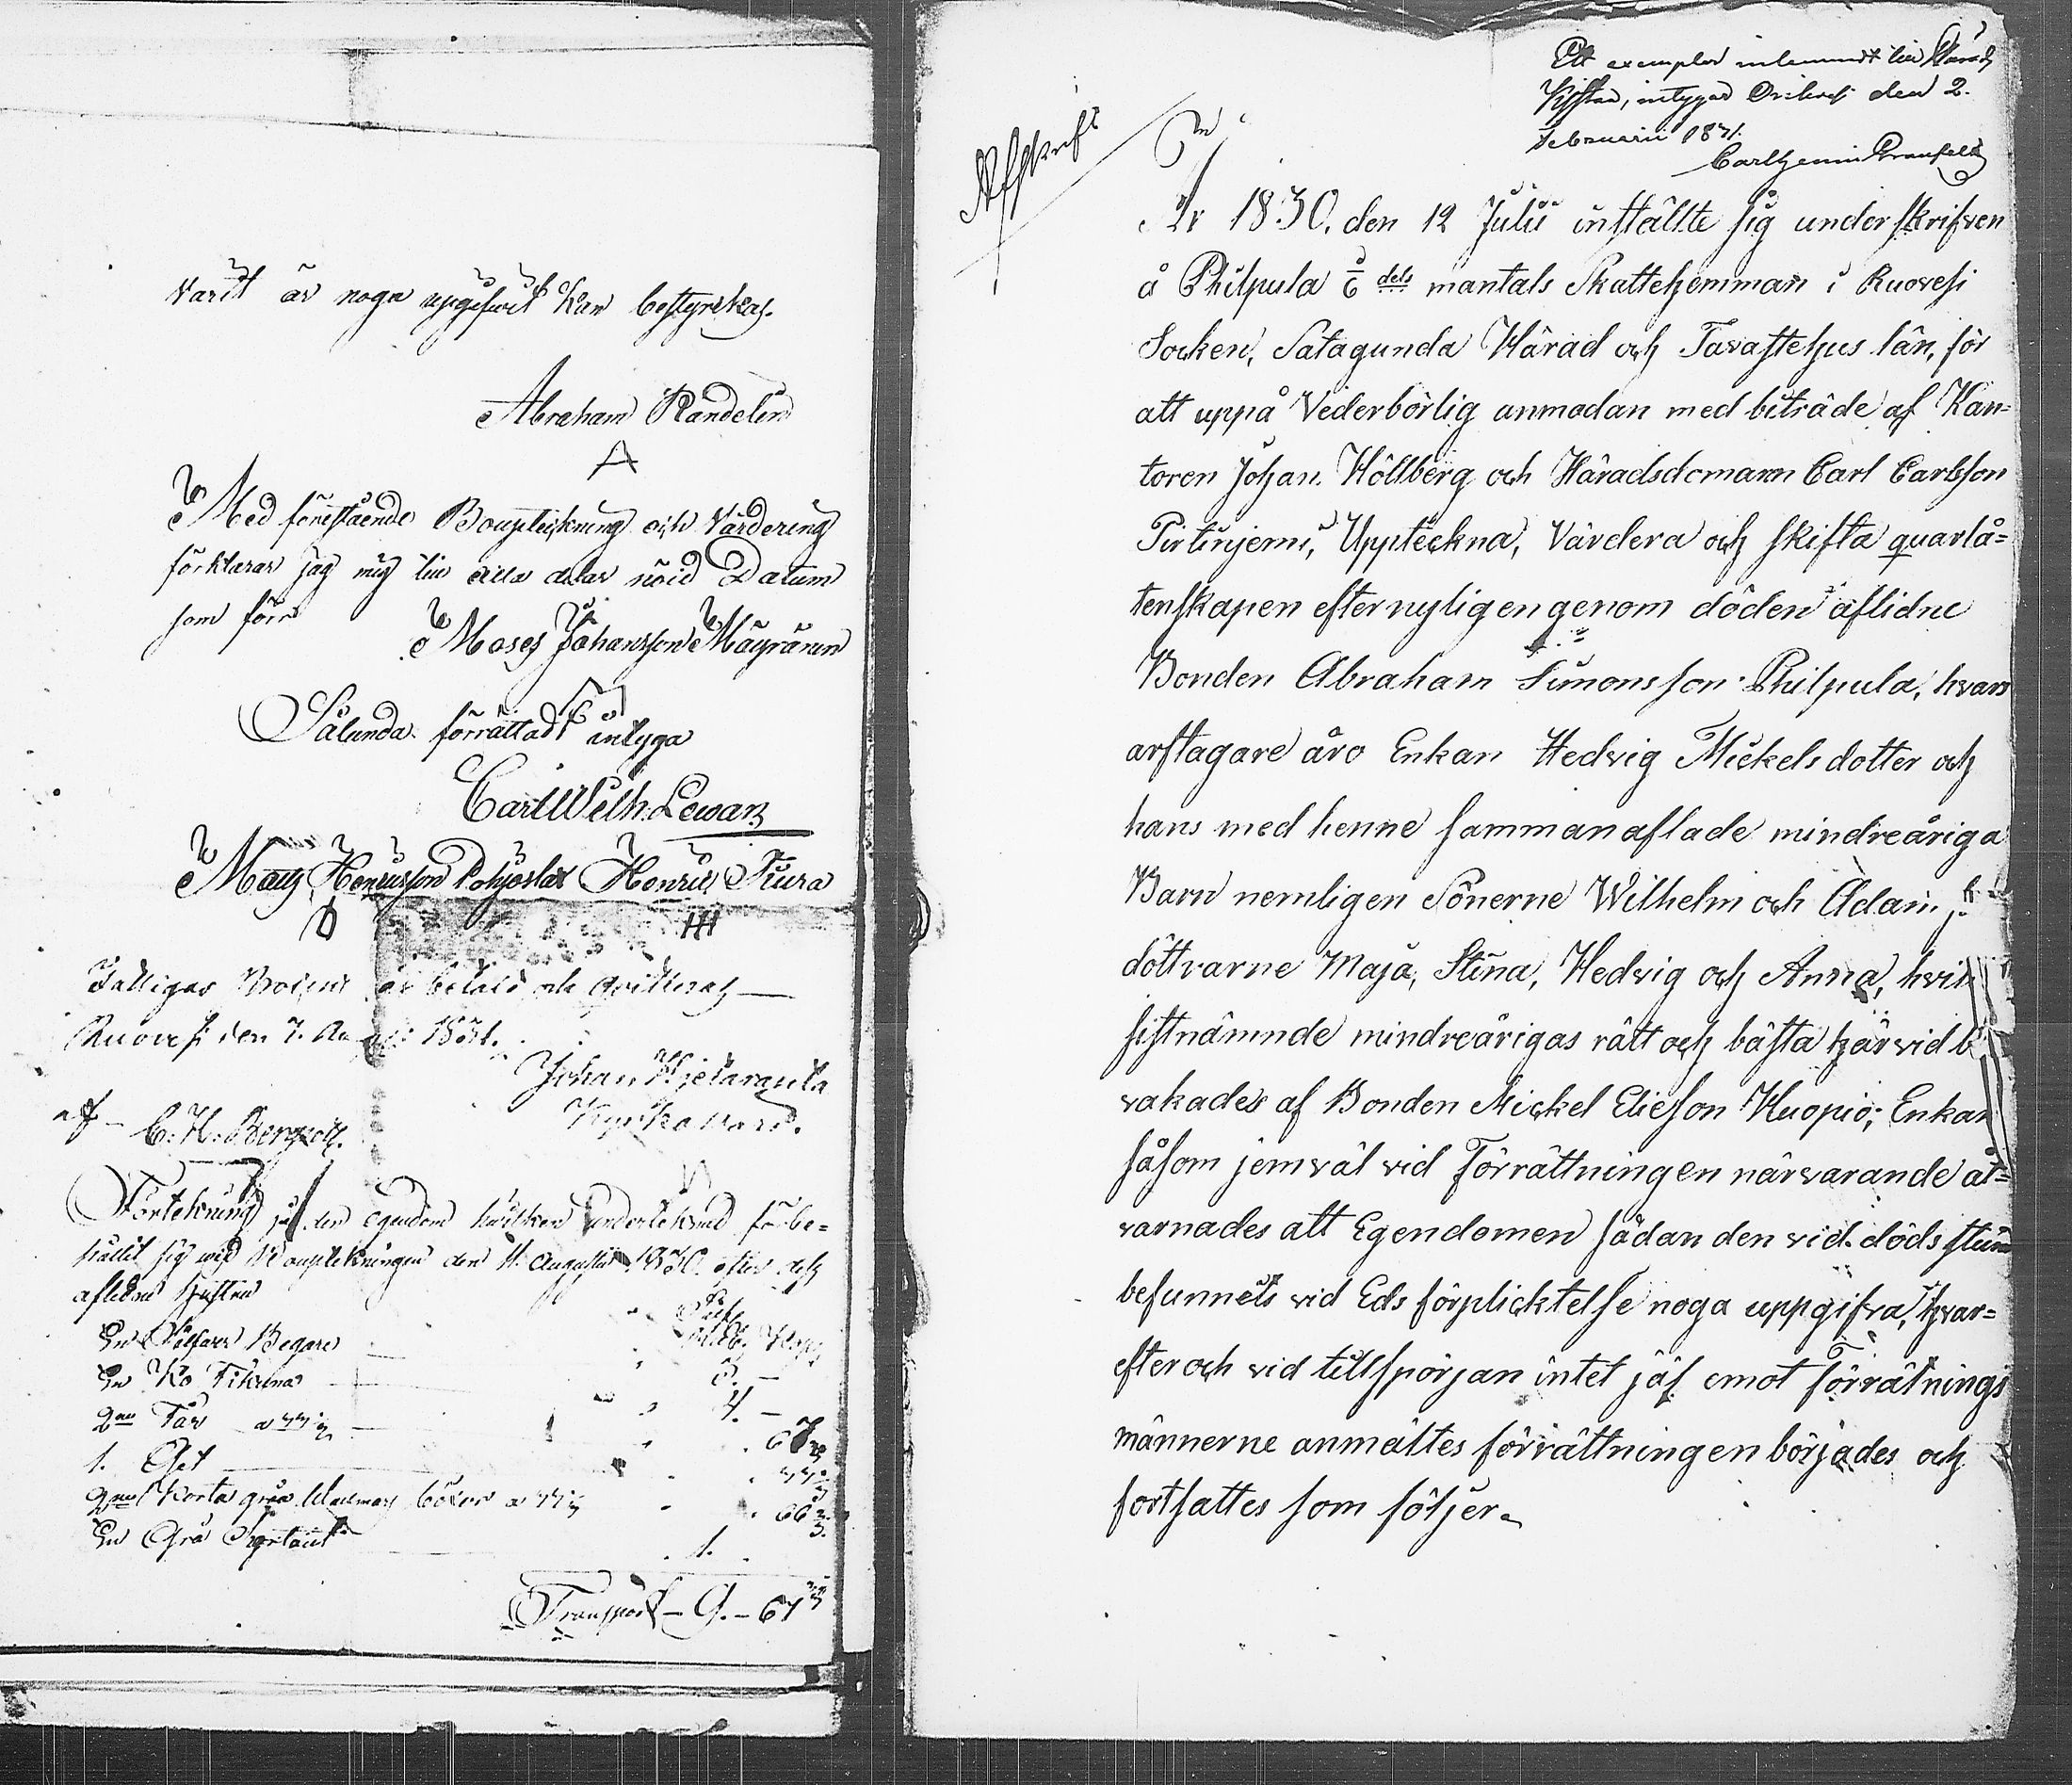 varit är noga uppgifvit kan bestyrkas.
Abraham Randelin
Med förestående Bouptekning och Värdering
förklarar jag mig till alla delar nöid Datum
som förr
Moses Johansson Mäyränen
Sålunda förrättadt intyga
Carl Wilh: Lewan
Mats Henricsson Pohjoslax Henric Kura
är betald och qvitteras
Ruovesi den 7. 1831.
Johan Hjetaranta
Kyrkovärd.
af C. H. Bergroth.
Förtekning på den egendom hvilken undertecknad förbe-
hållit sig vid Bouptekningen den 11 Augusti 1830. efter dess
aflidne Hustru
Silf.
Rub. Kop.
En Silfver Begare
En Ko Tikuna
2ne Får
1. Get
2ne korta grå Wallmars böxor
En Grå Syrtout 1.
Transport 9. 67
Ett exemplar inlemnadt till Härads
Kistan, intygar Orihvesi den 2.
Februarii 1831.
Afskrift
År 1830. den 12 Julii inställte sig underskrifven
å Philpula 1/6 dels mantals Skattehemman i Ruovesi
Socken, Satagunda Härad och Tavastehus län, för
att uppå Vederbörlig anmodan med biträde af Kan-
toren Johan Höllberg och Häradsdomaren Carl Carlsson
Pirtinjemi, Uppteckna, Värdera och skifta quarlå-
tenskapen efter nyligen genom döden aflidne
Bonden Abraham Simonsson Philpula, hvars
arftagare äro Enkan Hedvig Mickelsdotter och
hans med henne sammanaflade mindreåriga
Barn nemligen Sönerne Wilhelm och Adam,
döttrarne Maja, Stina, Hedvig och Anna,
sistnämnde mindreårigas rätt och bästa härvid be
vakades af Bonden Mickel Elieson Kuopio; Enkan
såsom jemväl vid Förrättningen närvarande åt-
varnades att Egendomen sådan den vid dödsstund
befunnits vid Eds förplicktelse noga uppgifva, hvar-
efter och vid tillspörjan intet jäf emot förrätnings
männerne anmältes förrättningen börjades och
fortsattes som följer.